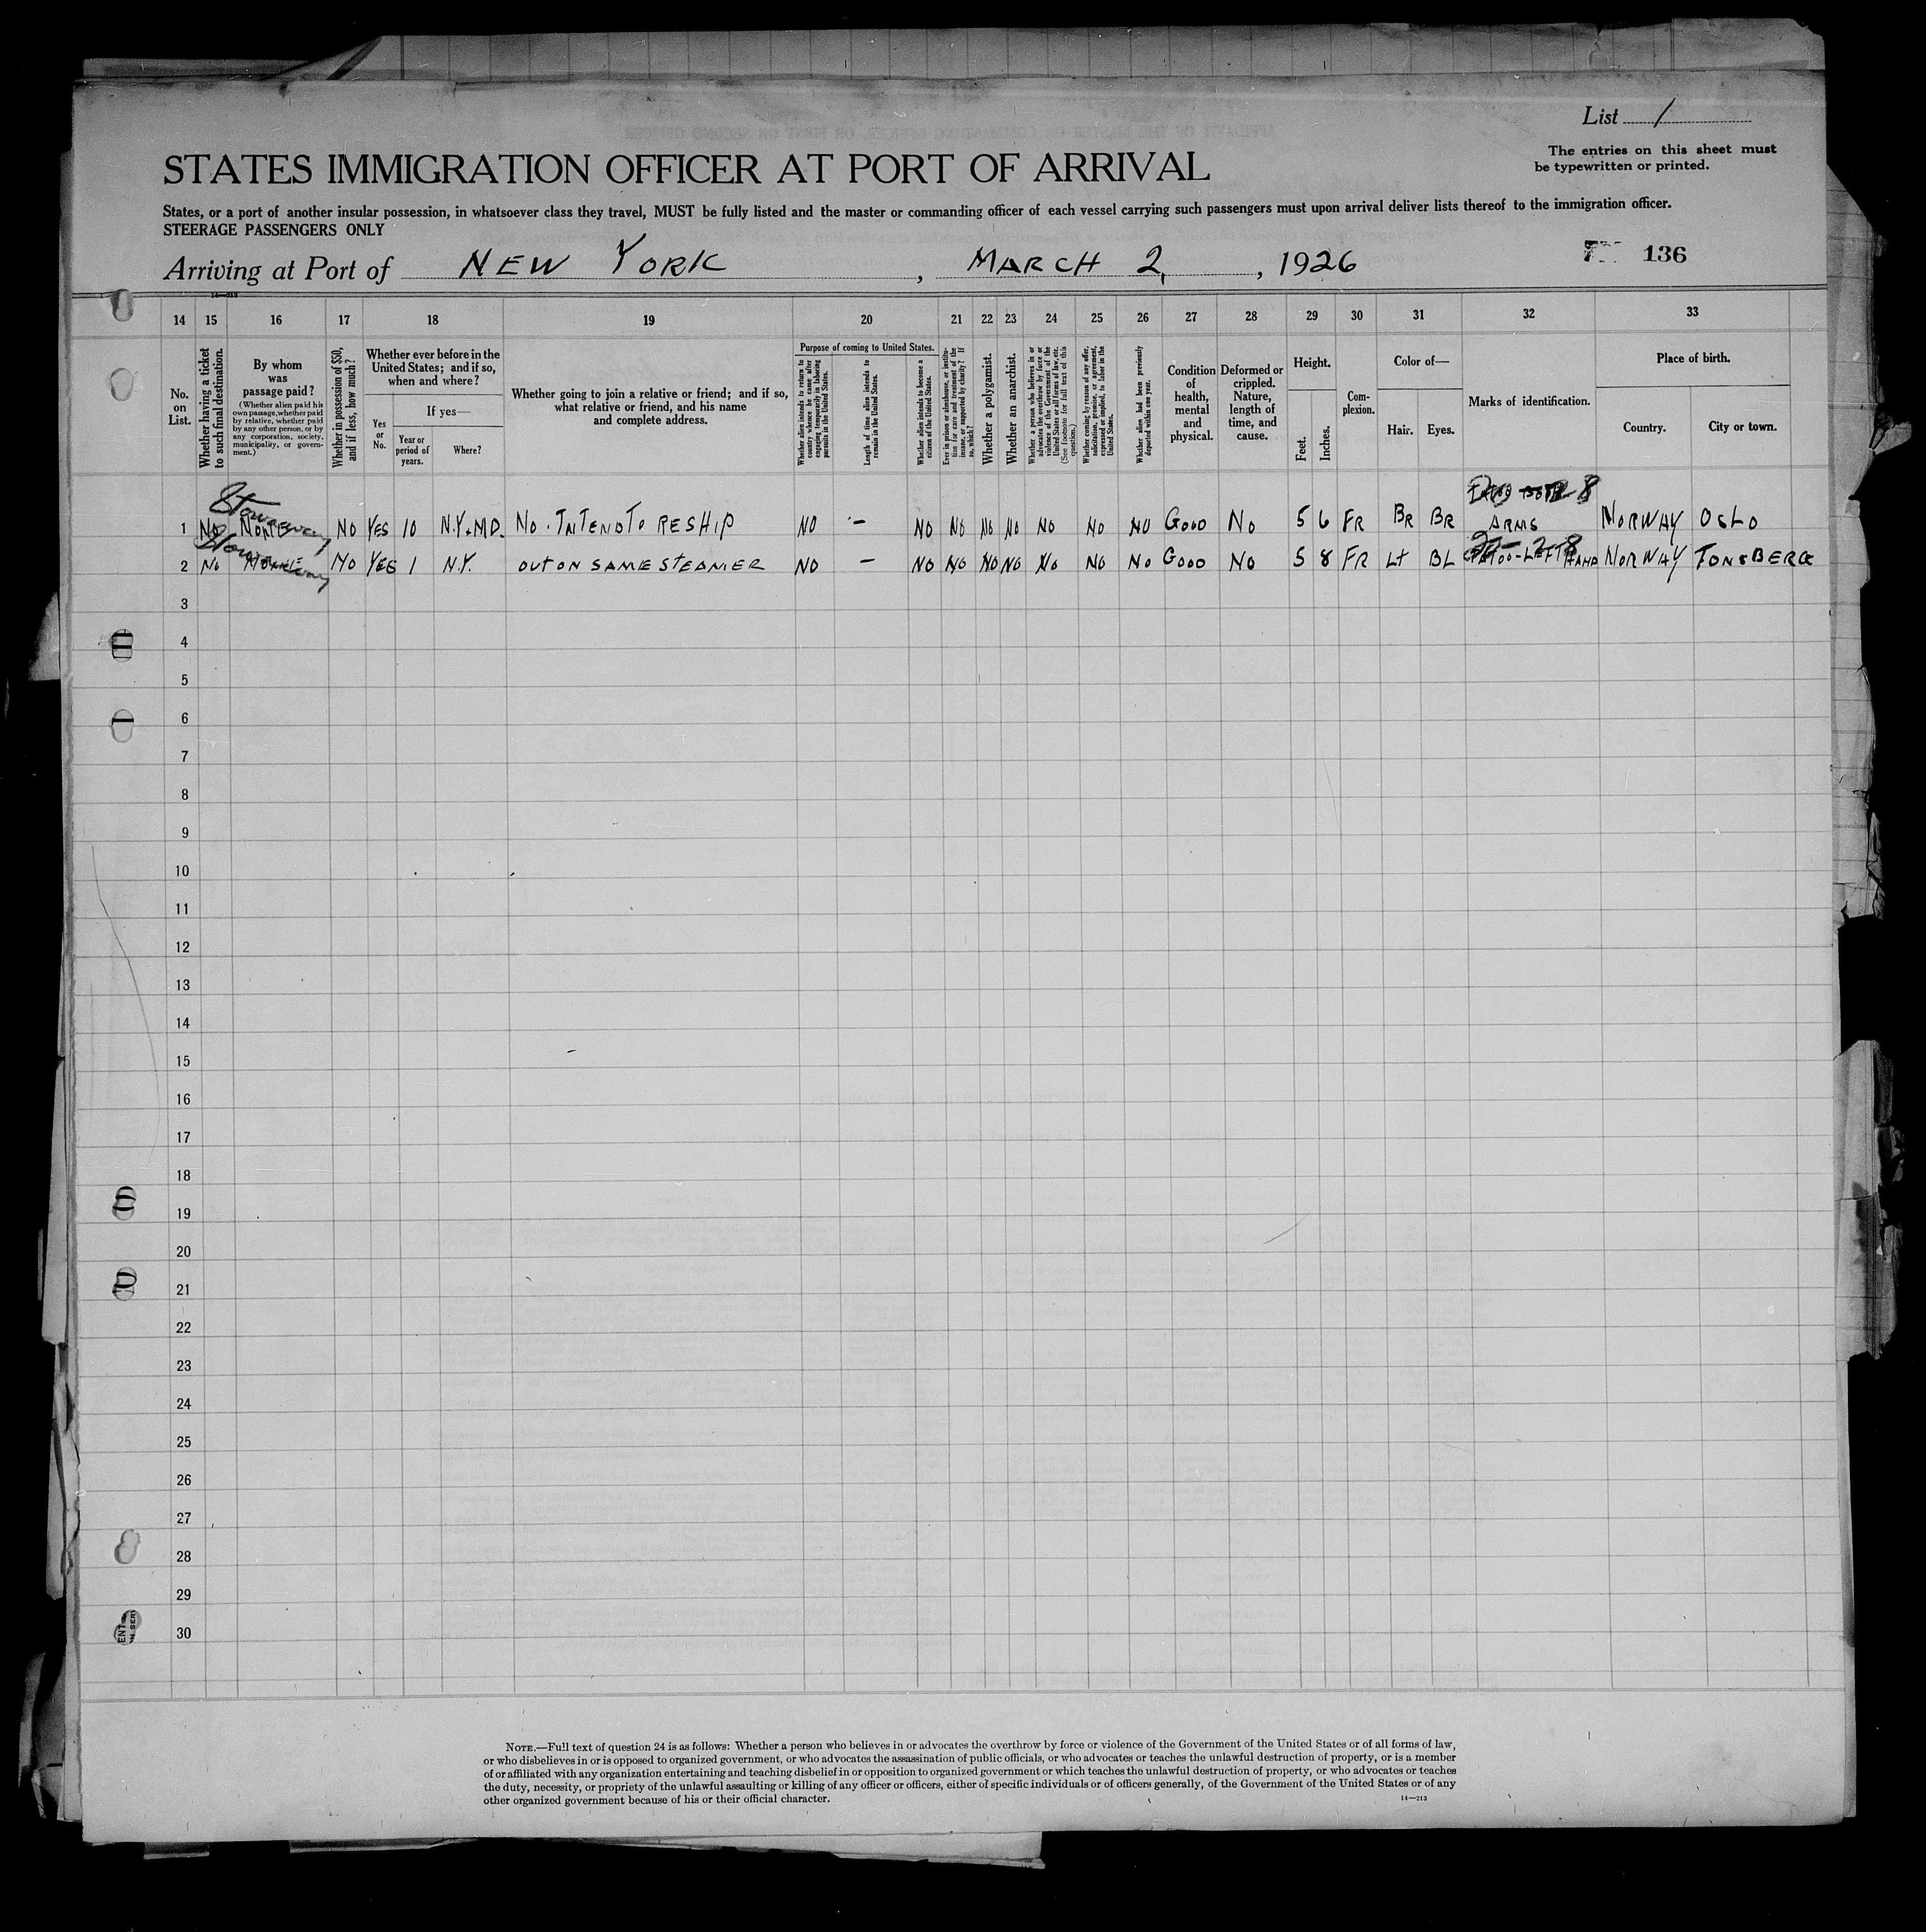 List 1
The entries on this sheet must
be typewritten or printed.
STATES IMMIGRATION OFFICER AT PORT OF ARRIVAL
States, or a port of another insular possession, in whatsoever class they travel, MUST be fully listed and the master or commanding officer of each vessel carrying such passengers must upon arrival deliver lists thereof to the immigration officer.
STEERAGE PASSENGERS ONLY
Arriving at Port of NEW YORK, MARCH 2, 1926
136
14—213
14 15 16 17 18 19 20 21 22 23 24 25 26 27 28 29 30 31 32 33
No. on List.
Whether having a ticket to such final destination.
By whom was passage paid?
(Whether alien paid his own passage, whether paid by relative, whether paid by any other person, or by any corporation, society, municipality, or government.)
Whether in possession of $50, and if less, how much?
Whether ever before in the United States; and if so, when and where?
Yes or No.
If yes—
Year or period of years.
Where?
Whether going to join a relative or friend; and if so, what relative or friend, and his name and complete address.
Purpose of coming to United States.
Whether alien intends to return to country whence he came after engaging temporarily in laboring pursuits in the United States.
Length of time alien intends to remain in the United States.
Whether alien intends to become a citizen of the United States.
Ever in prison or almshouse, or institution for care and treatment of the insane, or supported by charity? If so, which?
Whether a polygamist.
Whether an anarchist.
Whether a person who believes in or advocates the overthrow by force or violence of the Government of the United States or all forms of law, etc. (See footnote for full text of this question.)
Whether coming by reason of any offer, solicitation, promise, or agreement, expressed or implied, to labor in the United States.
Whether alien had been previously deported within one year.
Condition of health, mental and physical.
Deformed or crippled. Nature, length of time, and cause.
Height.
Feet.
Inches.
Complexion.
Color of—
Hair. Eyes.
Marks of identification.
Place of birth.
Country. City or town.
Stowaway
1 NO NONE NO YES 10 N.Y. MD. NO. INTEND TO RESHIP NO — NO NO NO NO NO NO NO GOOD NO 5 6 FR BR BR ARMS NORWAY OSLO
Stowaway
2 NO NONE NO YES 1 N.Y. OUT ON SAME STEAMER NO — NO NO NO NO NO NO NO GOOD NO 5 8 FR LT BL TATOO-LEFT HAND NORWAY TONSBERG
3
4
5
6
7
8
9
10
11
12
13
14
15
16
17
18
19
20
21
22
23
24
25
26
27
28
29
30
NOTE.—Full text of question 24 is as follows: Whether a person who believes in or advocates the overthrow by force or violence of the Government of the United States or of all forms of law,
or who disbelieves in or is opposed to organized government, or who advocates the assassination of public officials, or who advocates or teaches the unlawful destruction of property, or is a member
of or affiliated with any organization entertaining and teaching disbelief in or opposition to organized government or which teaches the unlawful destruction of property, or who advocates or teaches
the duty, necessity, or propriety of the unlawful assaulting or killing of any officer or officers, either of specific individuals or of officers generally, of the Government of the United States or of any
other organized government because of his or their official character.
14—213